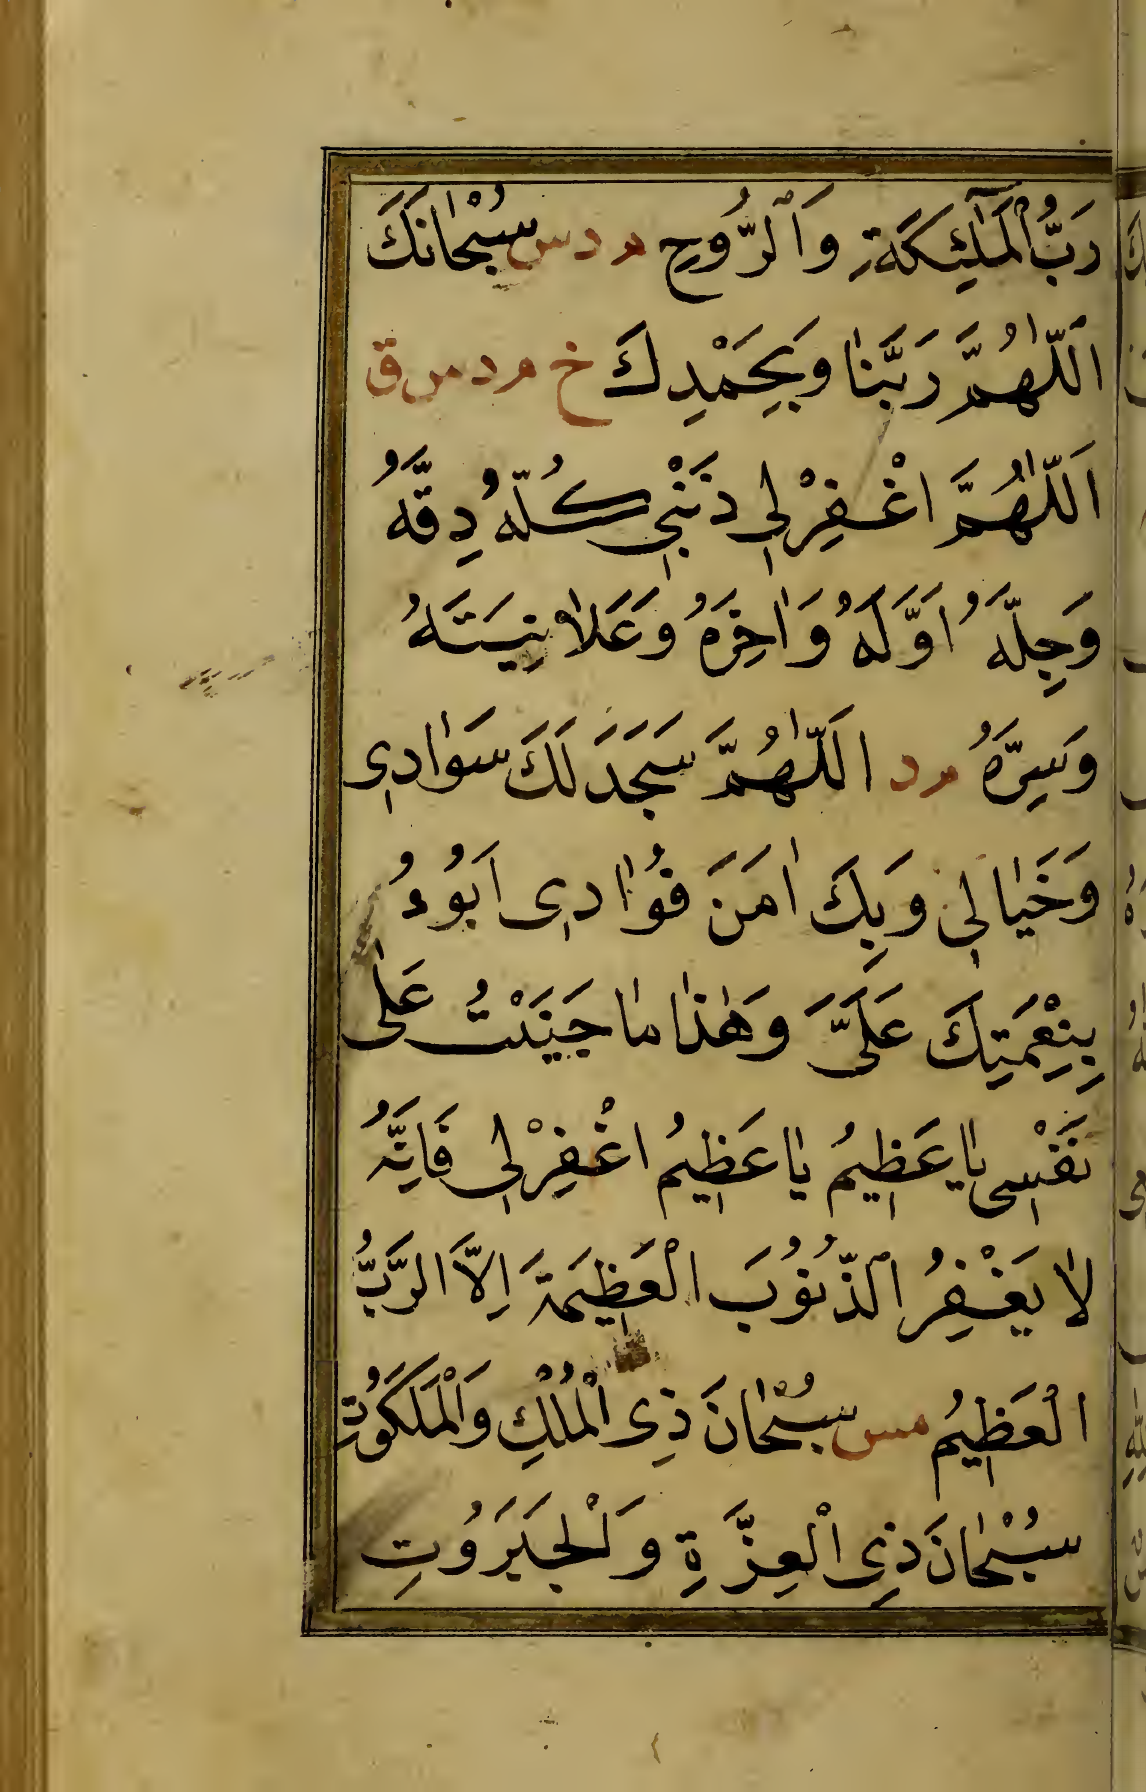 رَبُّ الْمَلٰٓئِكَةِ وَالرُّوحِ م د س سُبْحٰانَكَ
اَللّٰهُمَّ رَبَّنٰا وَبِحَمْدِكَ خ م د س ق
اَللّٰهُمَّ اغْفِرْلِي ذَنْبِي كُلَّهُ دِقَّهُ
وَجِلَّهُ اَوَّلَهُ وَاٰخِرَهُ وَعَلاٰنِيَتَهُ
وَسِرَّهُ م د اَللّٰهُمَّ سَجَدَ لَكَ سَوٰادِي
وَخَيٰالِي وَبِكَ اٰمَنَ فُؤٰادِي اَبُوءُ
بِنِعْمَتِكَ عَلَيَّ وَهٰذٰا مٰا جَنَيْتُ عَلٰى
نَفْسِي يٰا عَظِيمُ يٰا عَظِيمُ اغْفِرْلِي فَاِنَّهُ
لاٰ يَغْفِرُ الذُّنُوبَ الْعَظِيمَةَ اِلاَّ الرَّبُّ
الْعَظِيمُ مس سُبْحٰانَ ذِي الْمُلْكِ وَالْمَلَكُوتِ
سُبْحٰانَ ذِي الْعِزَّةِ وَالْجَبَرُوتِ